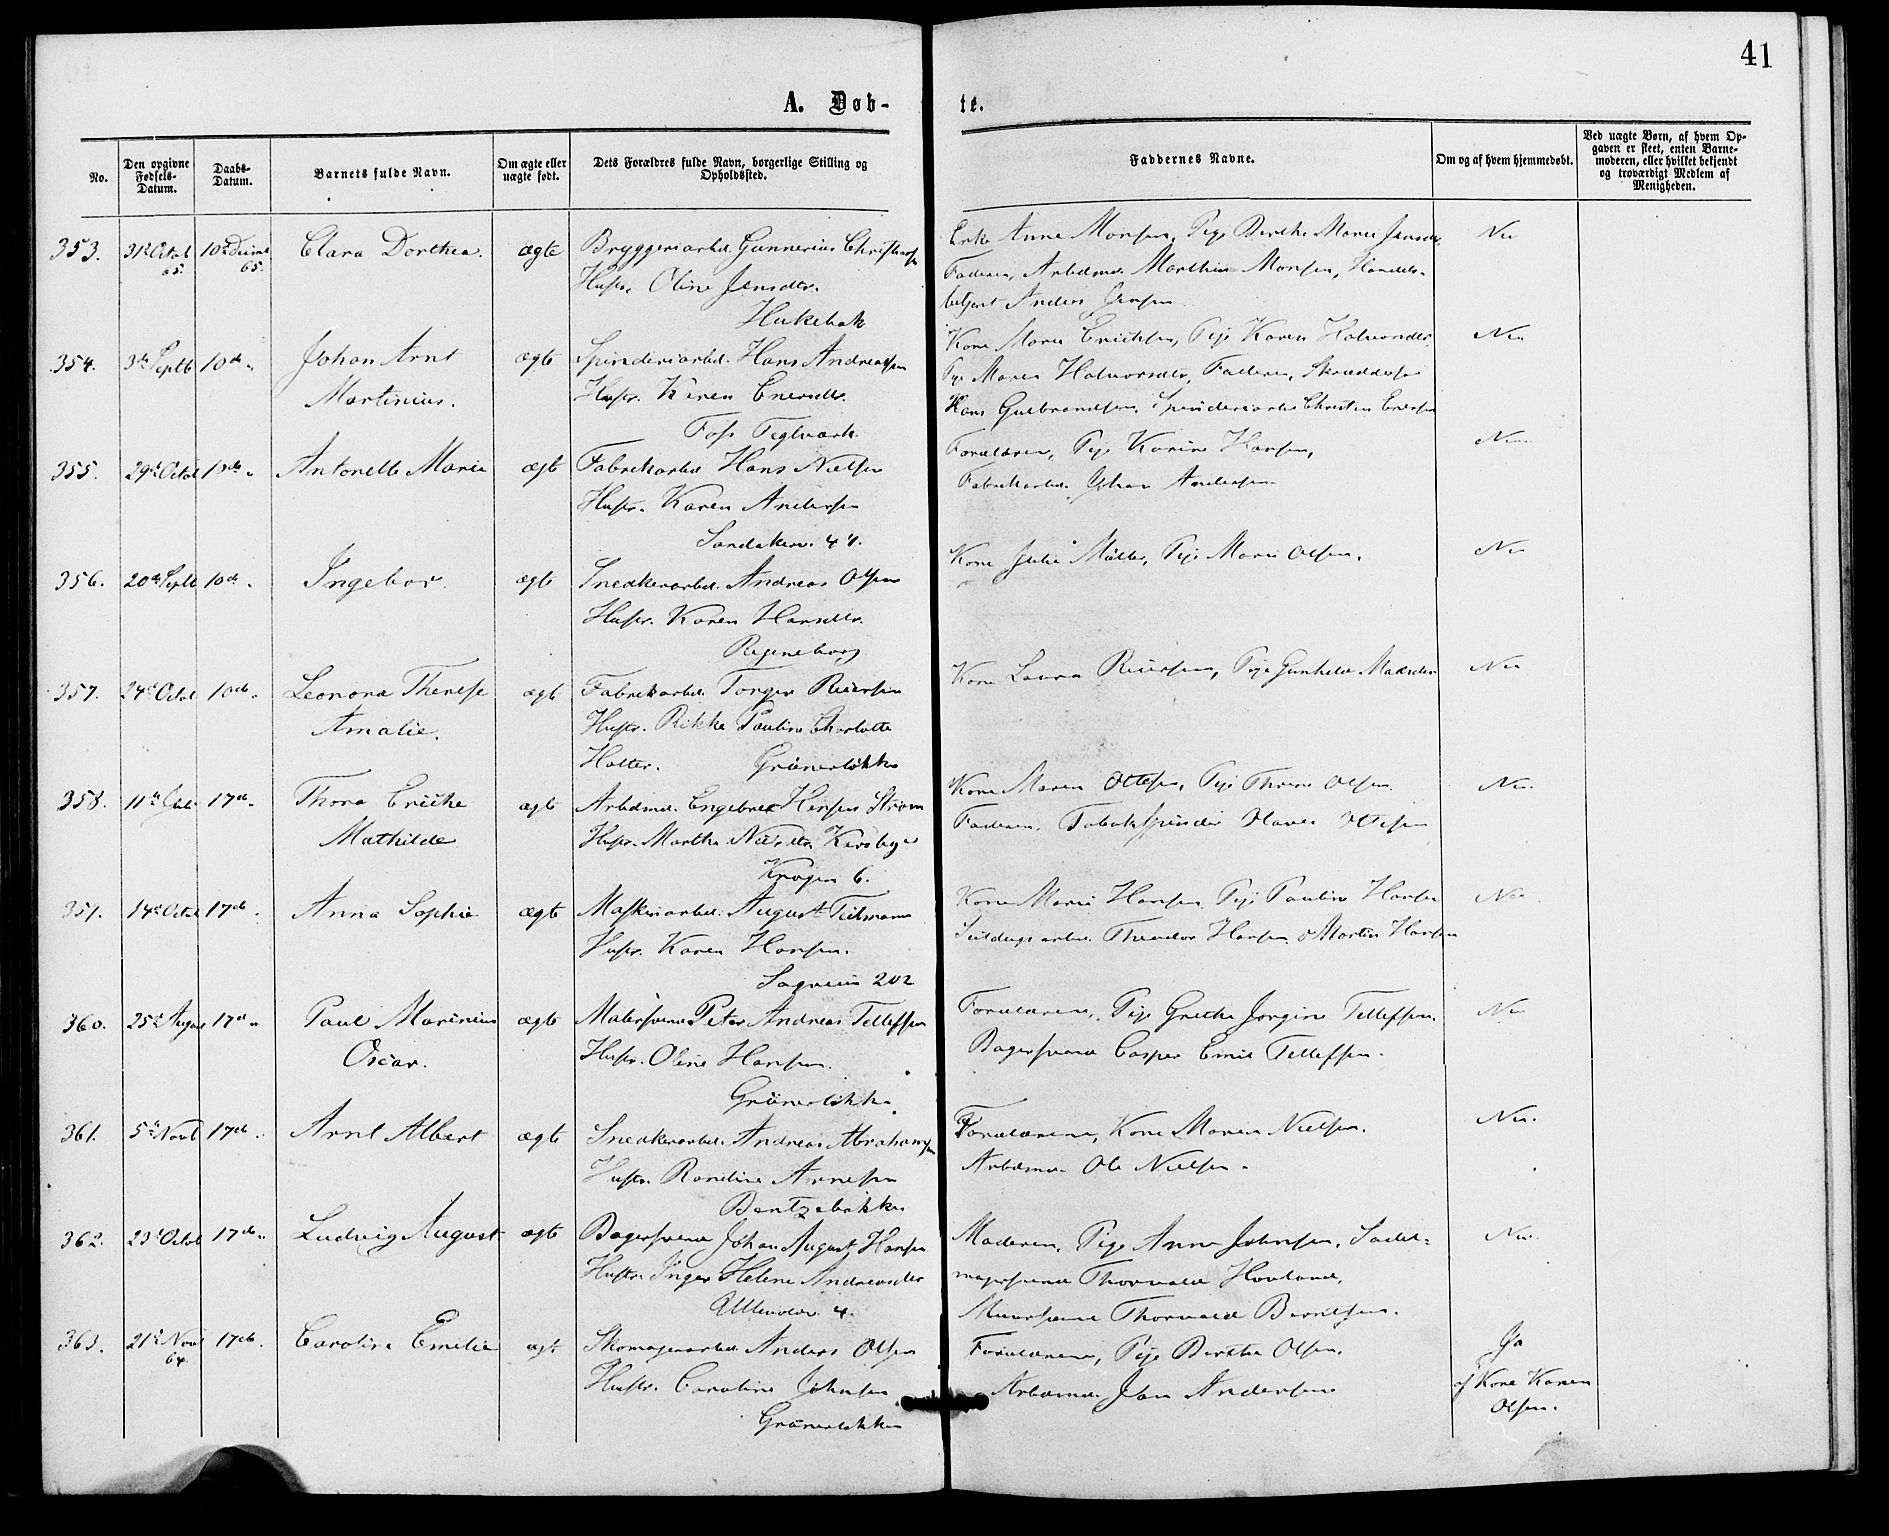 41
A. Døb-
te.
No.
Den opgivne Fødsels-Datum.
Daabs-Datum.
Barnets fulde Navn.
Om ægte eller uægte født.
Dets Forældres fulde Navn, borgerlige Stilling og Opholdssted.
Faddernes Navne.
Om og af hvem hjemmedøbt.
Ved uægte Børn, af hvem Op-
gaven er skeet, enten Barne-
moderen, eller hvilket bekjendt
og troværdigt Medlem af
Menigheden.
353. 31te Octob 65. 10de Decmb 65. Clara Dorthea. ægte Bryggeriarbd. Gunnerius Christensen
Hustr. Oline Jensdtr.
Hukebak
Enke Anne Monsen, Pige Berthe Marie Jensen
Faderen, Arbdmd. Marthin Monsen, Handels-
betjent Anders Jensen
Nei
354. 3de Septb 10de. Johan Arnt ægte Spinderiarbd. Hans Andreassen
Martinius. Hustr. Karen Enersdtr.
Foss Teglværk.
Kone Maren Erichsen, Pige Karen Halvorsdtr
Pige Maren Halvorsdtr, Faderen,
Hans Gulbrandsen, Spinderiarbd Christen Enersen
Nei
355. 29de Octob 10de. Antonette Marie ægte Fabrikarbd. Hans Nielsen
Hustr. Karen Andersen
Sandakerv. 44.
Forældrene, Pige Karine Hansen,
Fabrikarbd. Johan Andersen.
Nei.
356. 20de Septb 10de. Ingebor. ægte Snedkerarbd. Andreas Olsen
Hustr. Karen Hansdtr.
Regineborg
Kone Julie Møller, Pige Marie Olsen.
Nei
357. 24de Octob 10de. Leonora Therese ægte Fabrikarbd. Torger Reiersen
Amalie. Hustr. Rikke Pauline Charlotte
Holter. Grünerløkka
Kone Laura Reiersen, Pige Gunhild
Nei
358. 11te Juli 17de. Thora Ericke ægte Arbdmd. Engebret Hansen Strøm
Mathilde Hustr. Marthe Nielsdtr.
Krogen 6.
Kone Maren Ottesen, Pige Thrine Olsen
Faderen, Tobakspinder Olaves Ottesen
Nei.
351. 14de Octob 17de. Anna Sophie ægte Maskinarbd. August Teilmann
Hustr. Karen Hansen.
Sagveien 202
Kone Marie Hansen, Pige Pauline Hansen
Seildugsarbd. Theodor Hansen, Martin Hansen
Nei
360. 25de August 17de. Paul Marinius ægte Malersvend Peter Andreas Tellefsen
Oscar. Hustr. Oline Hansen.
Grünerløkka
Forældrene, Pige Grethe Jorgine Tellefsen.
Bagersvend Casper Emil Tellefsen.
Nei
361. 5te Novb 17de. Arnt Albert ægte Snedkerarbd. Andreas Abrahamsen
Hustr. Randine Arnesen
Bentzebakken
Forældrene, Kone Maren Nielsen.
Arbdmd. Ole Nielsen.
Nei.
362. 23de Octob 17de. Ludvig August ægte Bagersvend Johan August Hansen
Hustr. Inger Helene Andreasdtr
4.
Moderen, Pige Anna Johnsen, Sadel-
magersvend Thorvald Hovland,
Muursvend Thorvald Berntsen.
Nei.
363. 21de Novb 64. 17de. Caroline Emilie ægt Skomagerarbd. Anders Olsen
Hustr. Caroline Johnsen
Grünerløkken
Forældrene, Pige Berthe Olsen,
Arbdmd. Jan Andersen
Ja
af Kone Karen
Olsen.